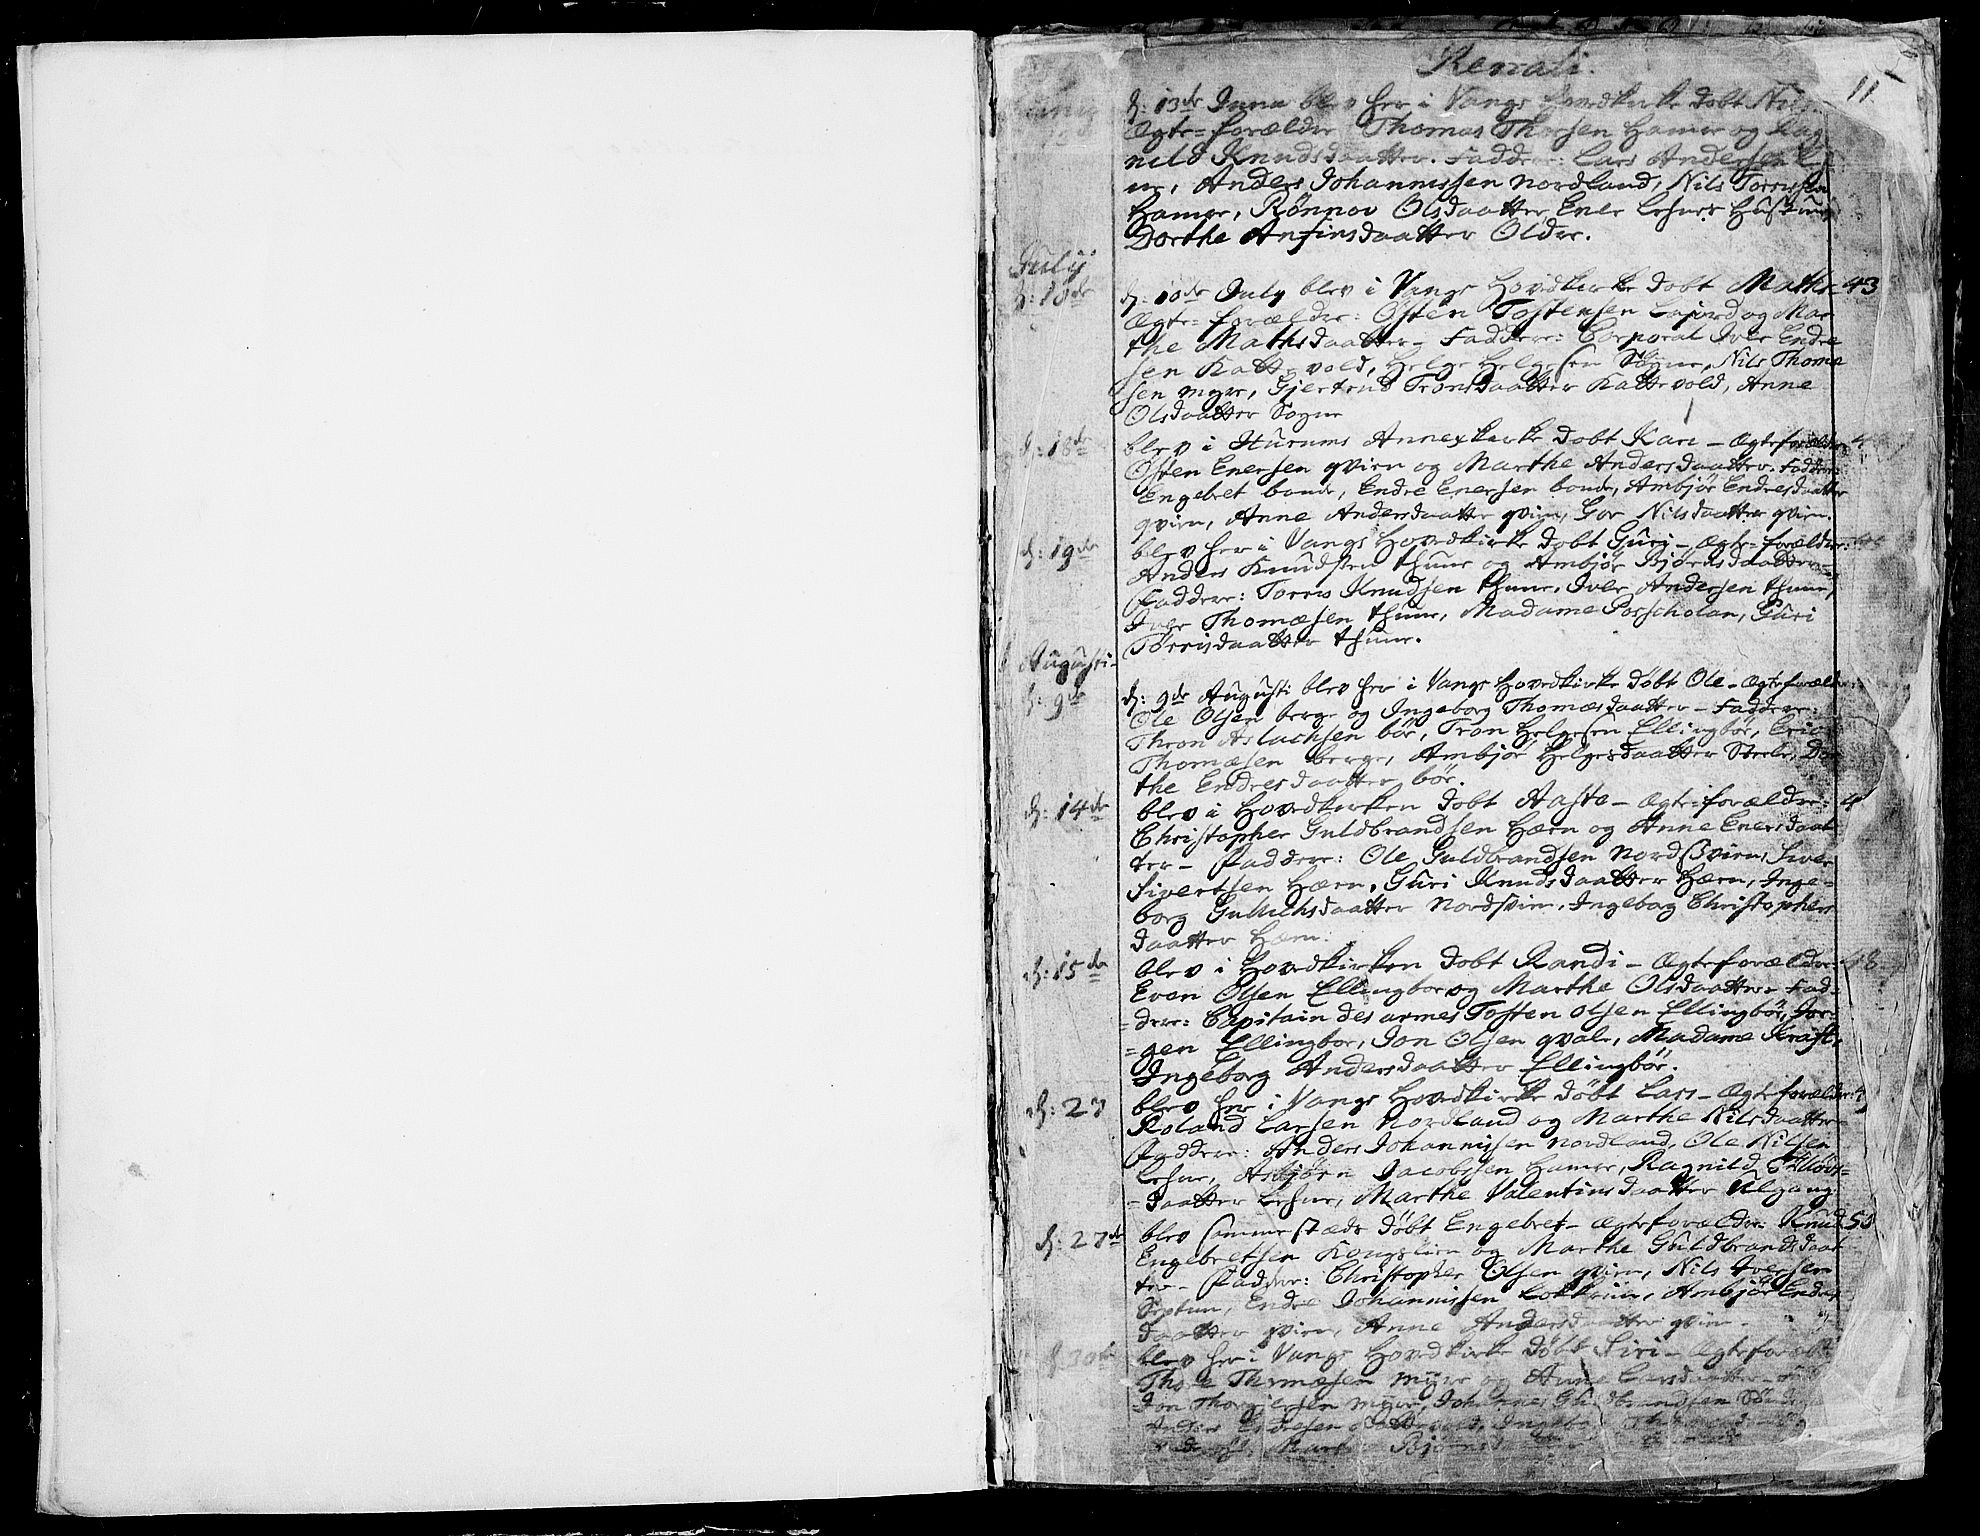 Renati.
11
d: 13de Junii blev her i Vangs Hovedkirke døbt Nils
Ægte-forældre Thomas Thorsen Hamre og Rag
nild Knudsdaatter. Faddere: Lars Andersen
Anders Johannessen Nordland, Nils Torrissen
Hamre, Rönnov Olsdaatter, Ener Lehnes Hustrue
Dorthe Anfinsdaatter Oldre.
July
d: 10de
d: 10de July blev i Vangs Hovedkirke døbt Mathis 43
Ægte-forældre: Östen Tostensen Lajord og Mar
the Mathisdaatter - Faddere: Corporal Iver Endre
sen Kattevold, Helge Helgesen Sogne, Nils Thome
sen myre, Gjertrud Tronsdaatter Kattevold, Anne
Olsdaatter Sogne
d: 18de
blev i Hurums Annexkirke døbt Kari - Ægteforældre
Östen Enersen qvien og Marthe Andersdaatter. Faddere:
Engebret bonde, Endre Enersen bonde, Ambjør Endresdaatter
qvien, Anne Andersdaatter qvien, Gor Nilsdaatter qvien.
d: 19de
blev her i Vangs Hovedkirke døbt Guri - Ægte-forældre:
Anders Knudsen thune og Ambjør Bjørnsdaatter
Faddere: Torris Knudsen thune, Iver Andersen thune,
Iver Thomæsen thune, Madame Borscholan, Guri
Torrisdaatter thune.
Augusti
d: 9de
d: 9de Augusti blev her i Vangs Hovedkirke døbt Ole - Ægteforældre
Ole Olsen berge og Ingeborg Thomæsdaatter - Faddere:
Thron Aslachsen bör, Tron Helgesen Ellingbör, Eric
Thomæsen berge, Ambjør Helgesdaatter Steele, Dor
the Endresdaatter bör.
d: 14de
blev i Hovedkirken døbt Aaste - Ægte-forældre:
Christopher Guldbrandsen Hærn og Anne Enersdaat
ter - Faddere: Ole Guldbrandsen Nordsvien, Siver
Sivertsen Hærn, Guri Knudsdaatter Hærn, Inge-
borg Gulliksdaatter Nordsvien, Ingeborg Christophers
daatter Hærn.
d: 15de
blev i Hovedkirken døbt Randi - Ægteforældre
Even Olsen Ellingbor og Marthe Olsdaatter - Fad-
dere: Capitain des armes Tosten Olsen Ellingbör, Jør-
gen Ellingbor, Jon Olsen qvale, Madame Kraft,
Ingeborg Andersdaatter Ellingbör.
d: 27
blev her i Vangs Hovedkirke døbt Lars - Ægteforældre:
Roland Larsen Nordland og Marthe Nilsdaatter
Faddere: Anders Johannissen nordland, Ole Nilsen
Lehne, Asbjørn Jacobssen Hamre, Ragnild
daatter Lehne, Marthe Valentinsdaatter
d: 27de
blev sammestæds døbt Engebret - Ægteforældre: Knud 50
Engebretsen Kongslien og Marthe Guldbrandsdaat
ter - Faddere: Christopher Olsen qvien, Nils Iversen
Endre Johannissen Lokkrin, Ambjør Endres
daatter qvien, Anne Andersdaatter qvien -
d: 30de
blev her i Vangs Hovedkirke døbt Siri - Ægteforæl
Thomæsen myre og Anne Larsdaatter
Jon myre, Johannes Guldbrandsen